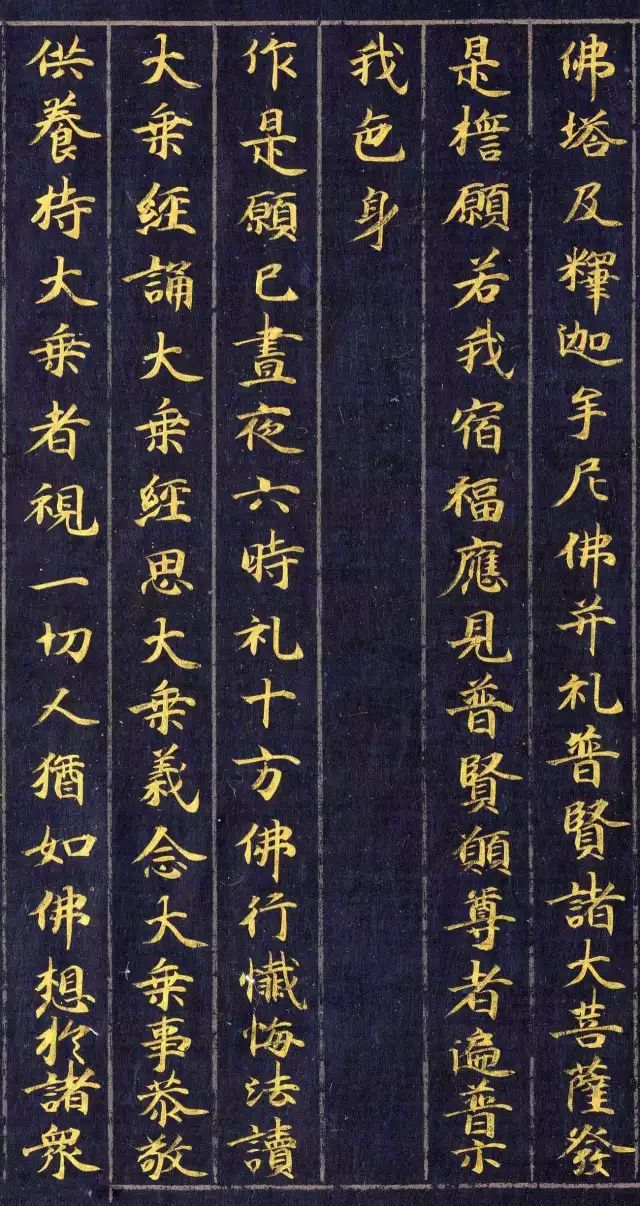 佛塔及釋迦牟尼佛并礼普賢諸大菩薩發
是誓願若我宿福應見普賢願尊者遍普示
我色身
作是願已晝夜六時礼十方佛行懺悔法讀
大乗經誦大乗經思大乗義念大乗事恭敬
供養持大乗者視一切人猶如佛想於諸眾